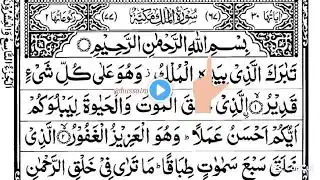 اٰیَاتُهَا ٣٠ (٦٧) سُوْرَةُ الْمُلْكِ مَكِّيَّةٌ (٧٧) رُكُوْعَاتُهَا ٢
بِسْمِ اللّٰهِ الرَّحْمٰنِ الرَّحِيْمِ
تَبٰرَكَ الَّذِيْ بِيَدِهِ الْمُلْكُ وَهُوَ عَلٰى كُلِّ شَيْءٍ
قَدِيْرُ الَّذِيْ الْمَوْتَ وَالْحَيٰوةَ لِيَبْلُوَكُمْ
اَيُّكُمْ اَحْسَنُ عَمَلًا وَهُوَ الْعَزِيْزُ الْغَفُوْرُ الَّذِيْ
خَلَقَ سَبْعَ سَمٰوٰتٍ طِبَاقًا مَا تَرٰى فِيْ خَلْقِ الرَّحْمٰنِ